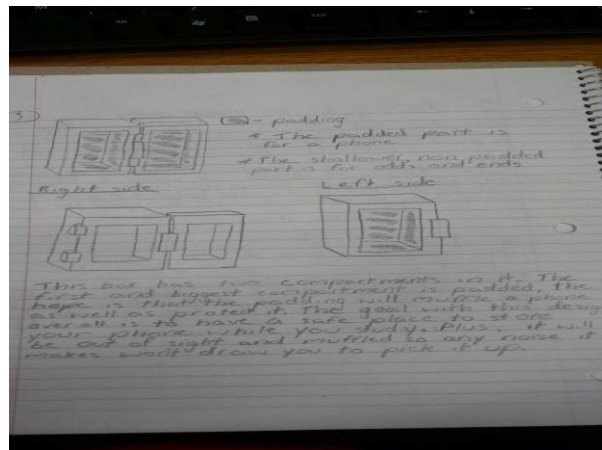 3
- padding
* The padded part is
for a phone
* The shallower, non padded
part is for odds and ends
Right side
Left side
This box has two compartments in it. The
first and biggest compartment is padded. The
hope is that the padding will muffle a phone
as well as protect it. The goal with this design
overall is to have a safe place to store
your phone while you study. Plus, it will
be out of sight and muffled so any noise it
makes won't draw you to pick it up.